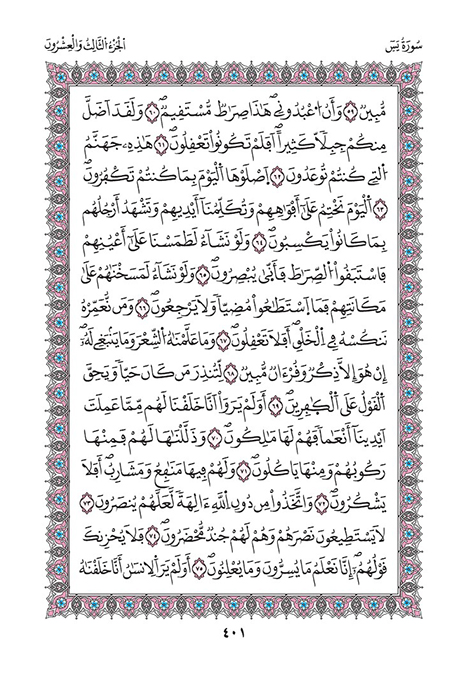 سُورَةُ يَسِٓ
الجُزْءُ الثَّالِثُ وَالْعِشْرُونَ
مُّبِينٌ ٥٩ وَأَنُ اُعْبُدُونِي هَٰذَا صِرَٰطٌ مُّسْتَقِيمٌ ٦٠ وَلَقَدَ اَضَلَّ
مِنكُمْ جِبِلّٗا كَثِيراً اَفَلَمْ تَكُونُواْ تَعْقِلُونَ ٦١ هَٰذِهِۦ جَهَنَّمُ
اُلتِي كُنتُمْ تُوعَدُونَ ٦٢ اَصْلَوْهَا اَلْيَوْمَ بِمَا كُنتُمْ تَكْفُرُونَ
٦٣ اَلْيَوْمَ نَخْتِمُ عَلَىٰٓ أَفْوَٰهِهِمْ وَتُكَلِّمُنَآ أَيْدِيهِمْ وَتَشْهَدُ أَرْجُلُهُم
بِمَا كَانُواْ يَكْسِبُونَ ٦٤ وَلَوْ نَشَآءُ لَطَمَسْنَا عَلَىٰٓ أَعْيُنِهِمْ
فَاسْتَبَقُواْ اُلصِّرَٰطَ فَأَنّ۪ىٰ يُبْصِرُونَ ٦٥ وَلَوْ نَشَآءُ لَمَسَخْنَٰهُمْ عَلَىٰ
مَكَانَتِهِمْ فَمَا اَسْتَطَٰعُواْ مُضِيّٗا وَلَا يَرْجِعُونَ ٦٦ وَمَن نُّعَمِّرْهُ
نَنكُسْهُ فِي اِلْخَلْقِ أَفَلَا تَعْقِلُونَ ٦٧ وَمَا عَلَّمْنَٰهُ اُلشِّعْرَ وَمَا يَنۢبَغِي لَهُۥٓ
إِنْ هُوَ إِلَّا ذِكْرٌ وَقُرْءَانٌ مُّبِينٌ ٦٨ لِّتُنذِرَ مَن كَانَ حَيّٗا وَيَحِقَّ
اَلْقَوْلُ عَلَى اَلْكٰ۪فِرِينَ ٦٩ أَوَلَمْ يَرَوَاْ اَنَّا خَلَقْنَا لَهُم مِّمَّا عَمِلَتَ
اَيْدِينَآ أَنْعَٰماٗ فَهُمْ لَهَا مَٰلِكُونَ ٧٠ وَذَلَّلْنَٰهَا لَهُمْ فَمِنْهَا
رَكُوبُهُمْ وَمِنْهَا يَاكُلُونَ ٧١ وَلَهُمْ فِيهَا مَنَٰفِعُ وَمَشَارِبُ أَفَلَا
يَشْكُرُونَ ٧٢ وَاتَّخَذُواْ مِن دُونِ اِللَّهِ ءَالِهَةٗ لَّعَلَّهُمْ يُنصَرُونَ ٧٣
لَا يَسْتَطِيعُونَ نَصْرَهُمْ وَهُمْ لَهُمْ جُندٌ مُّحْضَرُونَ ٧٤ فَلَا يُحْزِنكَ
قَوْلُهُمُۥٓ إِنَّا نَعْلَمُ مَا يُسِرُّونَ وَمَا يُعْلِنُونَ ٧٥ أَوَلَمْ يَرَ اَلِانسَٰنُ أَنَّا خَلَقْنَٰهُ
٤٠١